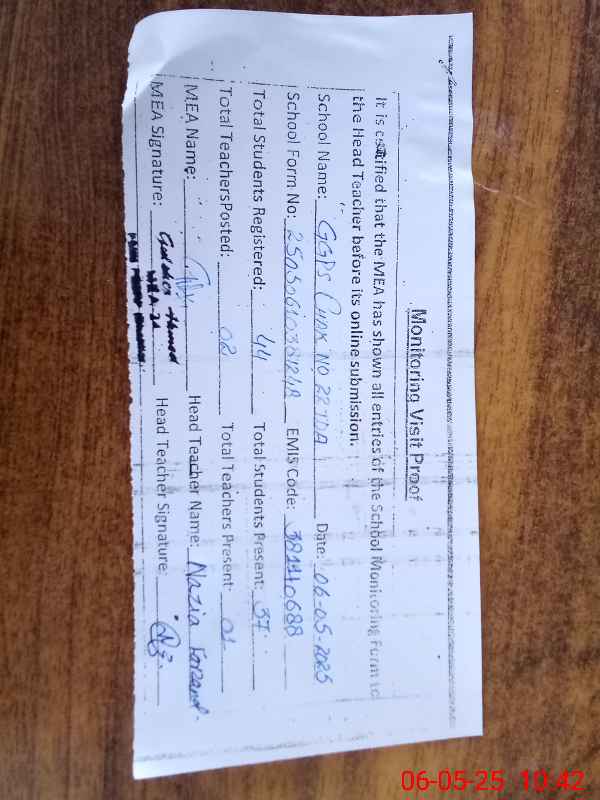 Monitoring Visit Proof
It is certified that the MEA has shown all entries of the School Monitoring Form to
the Head Teacher before its online submission.
School Name: GGPS Chak NO 227DA Date: 06-05-2025
School Form No: EMIS Code: 38110688
Total Students Registered: 44 Total Students Present: 37
Total TeachersPosted: 02 Total Teachers Present: 01
MEA Name: Head Teacher Name: Nazia
MEA Signature: Head Teacher Signature:
MEA-21
06-05-25 10:42